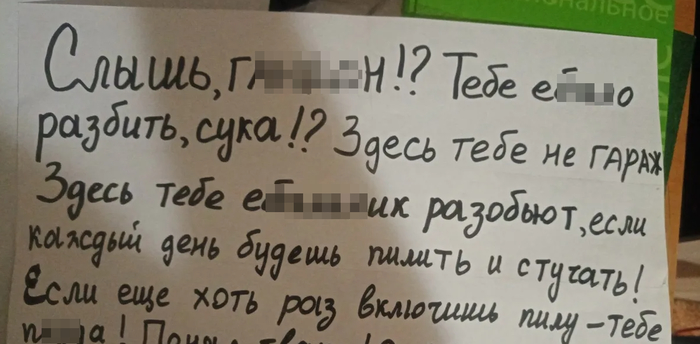 нальное
Слышь, !? Тебе
разбить, сука!? Здесь тебе не ГАРАЖ
Здесь тебе разобьют, если
каждый день будешь пилить и стучать!
Если еще хоть раз включишь пилу - тебе